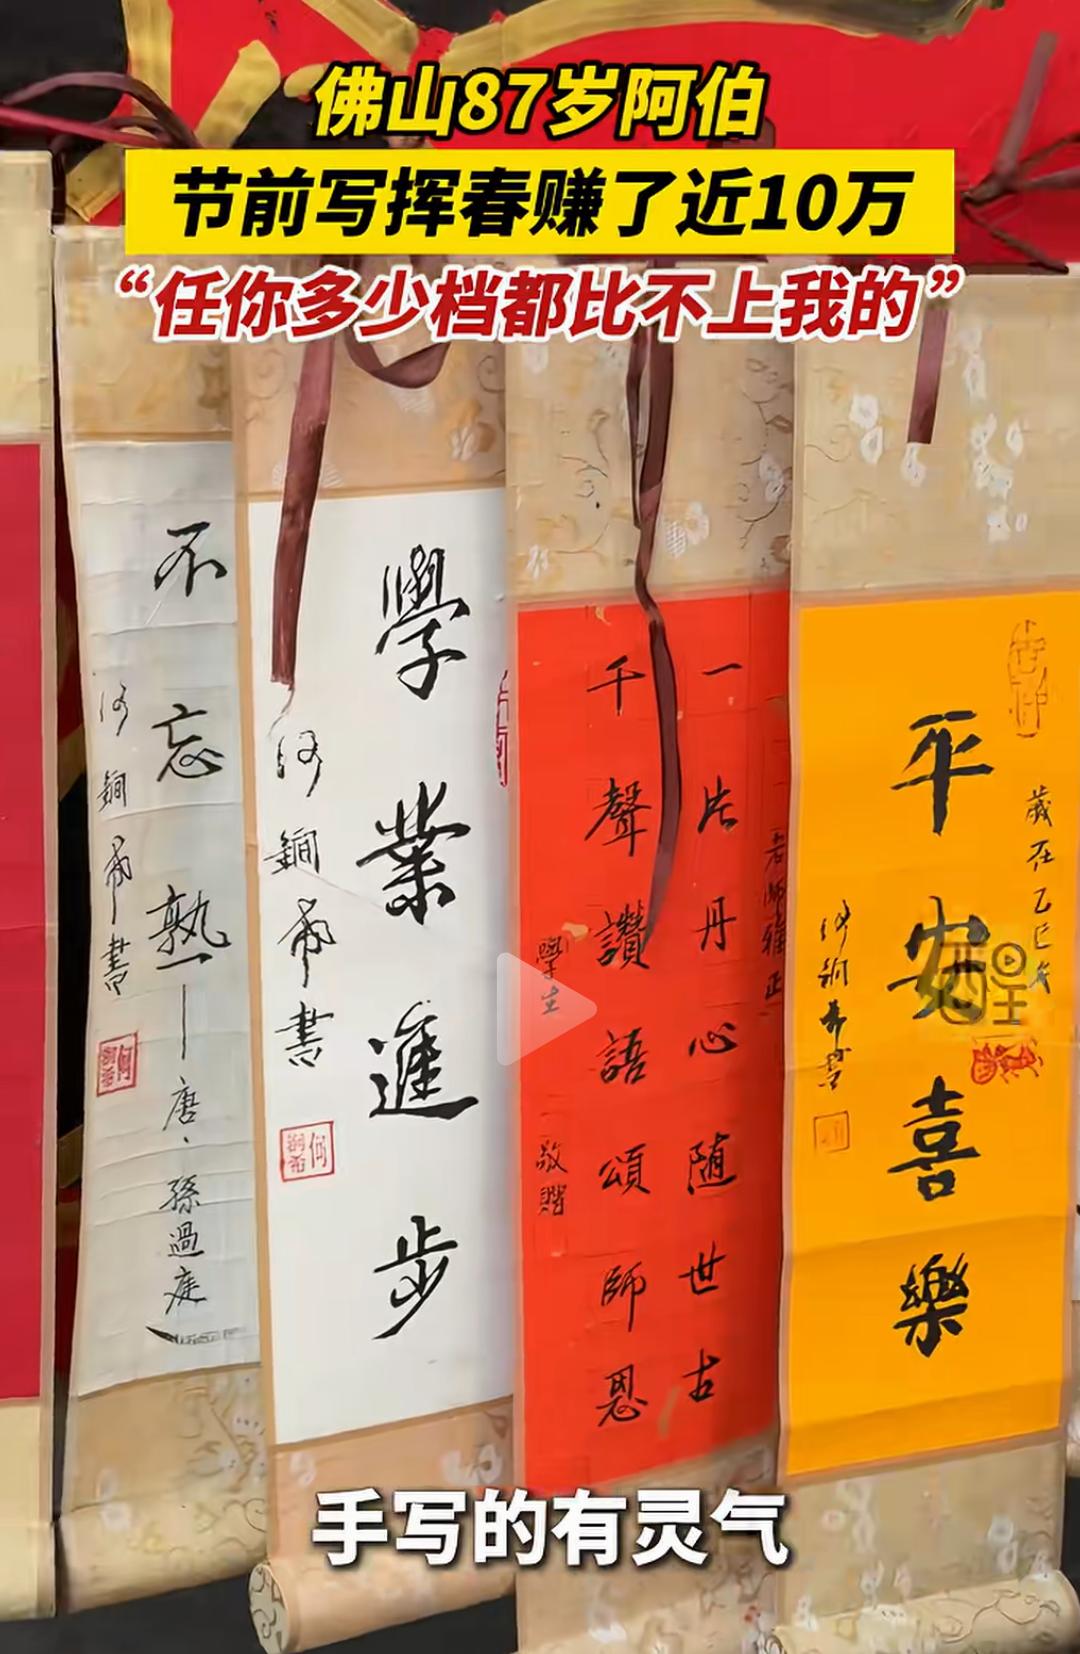 佛山87岁阿伯
节前写挥春赚了近10万
“任你多少档都比不上我的”
歲在乙巳
平安喜樂
一片丹心随世古
千聲讚語頌師恩
學生
敬贈
學業進步
何銅希書
不忘熟—唐、孫過庭
何銅希書
手写的有灵气